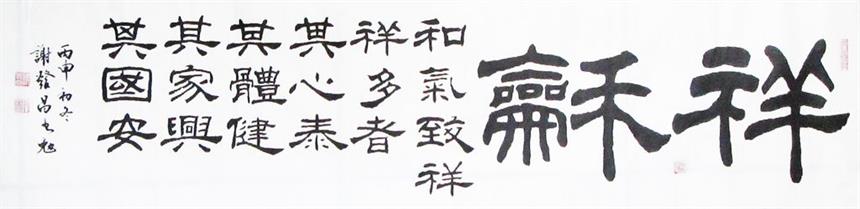 祥龢
和氣致祥
祥多者
其心泰
其體健
其家興
其國安
丙申初冬
謝發昌書